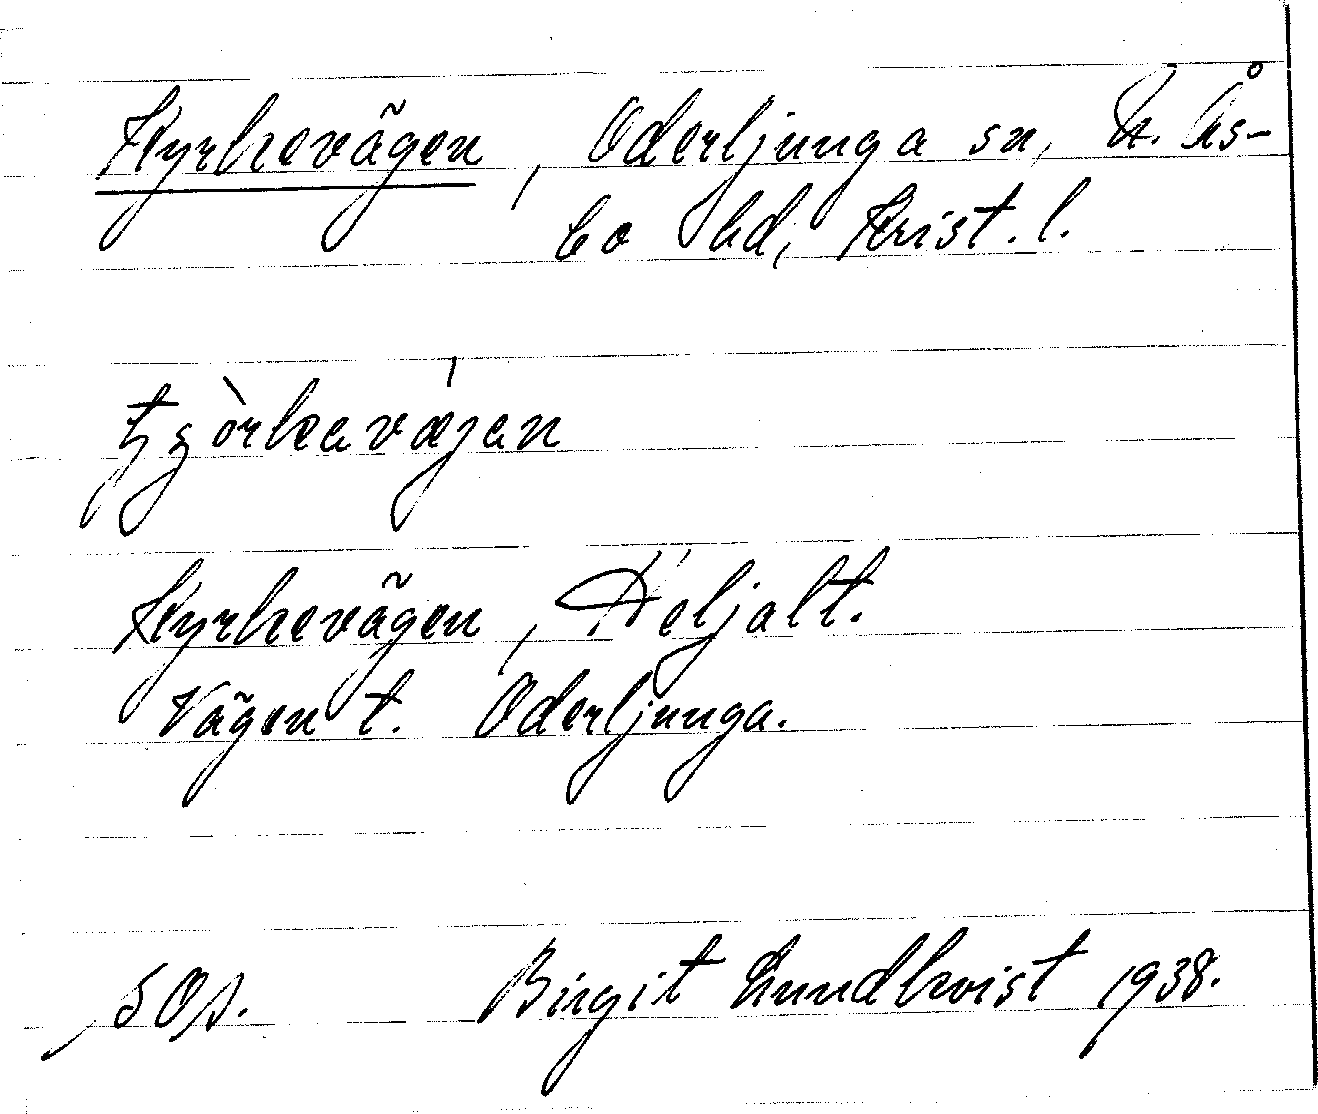 Kyrkevägen, Oderljunga sn, N. Ås-
bo hd, Krist. l.
tʒòrkavǽjan
Kyrkevägen, Deljalt.
Vägen t. Oderljunga.
Birgit Lundkvist 1938.